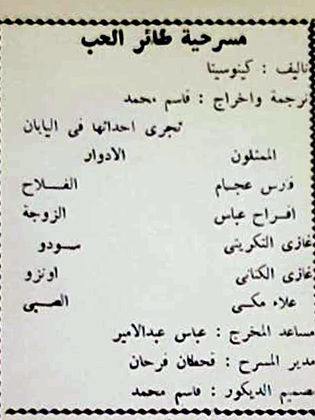 مسرحية طائر الحب
تاليف : كينوسيتا
ترجمة واخراج : قاسم محمد
تجرى احداثها فى اليابان
الممثلون الادوار
فارس عجام الفلاح
افراح عباس الزوجة
غازى التكريتى سودو
غازى الكنانى اونزو
علاء مكى الصبى
مساعد المخرج : عباس عبدالامير
مدير المسرح : قحطان فرحان
تصميم الديكور : قاسم محمد